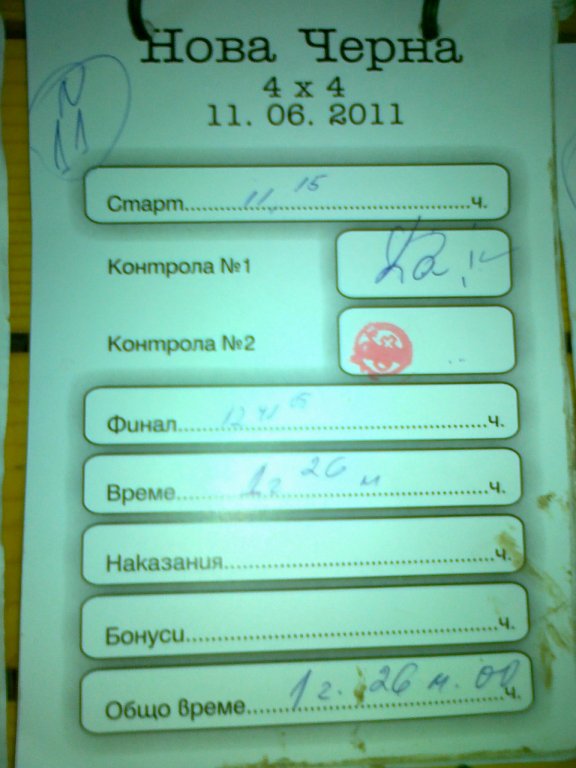 Нова Черна
4 x 4
11. 06. 2011
N
11
Старт 11,15 ч.
Контрола №1
Контрола №2
Финал 12 41 ч.
Време 1г 26 м ч.
Наказания ч.
Бонуси ч.
Общо време 1 г. 26 м. 00 ч.